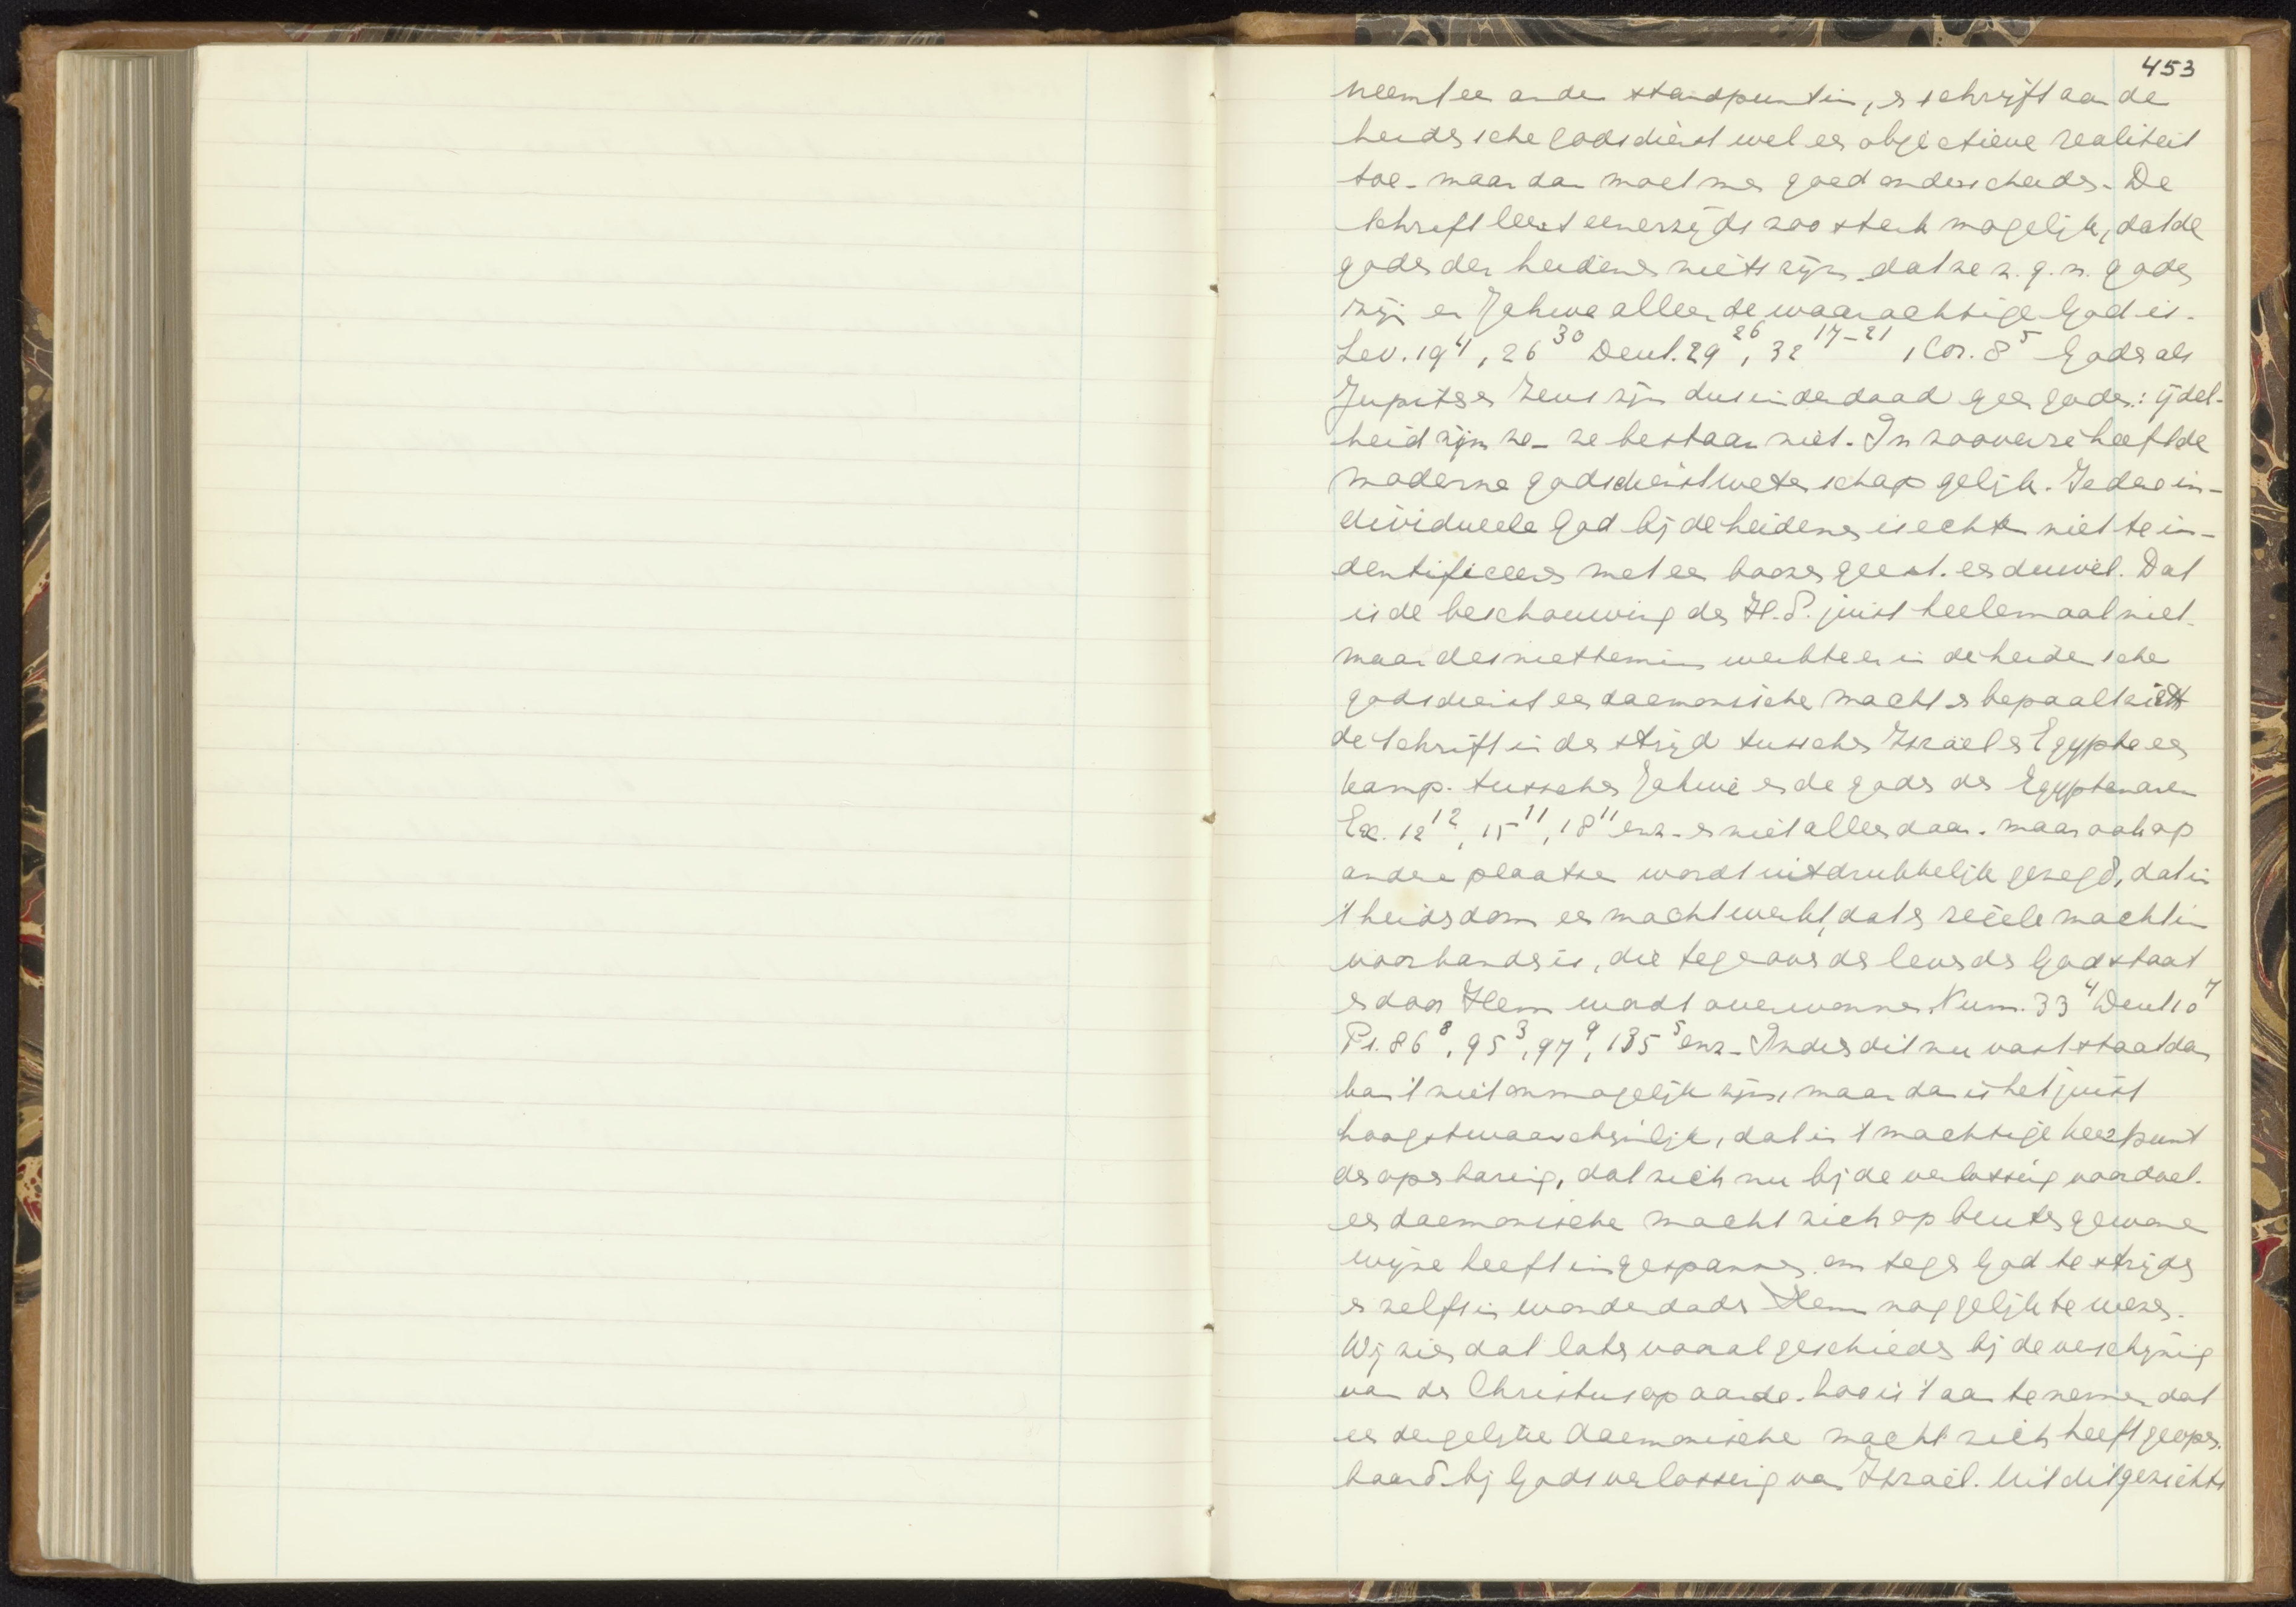 453
neemt een ander standpunt in, er schrijft aan de
heidensche godsdienst wel een objectieve realiteit
toe - maar dan moet men goed onderscheiden. De
Schrift leert eenerzijds zoo sterk mogelijk, dat de
goden der heidenen niets zijn - dat ze z.g.n. goden
zijn en Jahwe alleen de waarachtige God is.
Lev. 19⁴, 26³⁰ Deut. 29²⁶, 32¹⁷⁻²¹, 1 Cor. 8⁵ Goden als
Jupiter en Zeus zijn dus inderdaad geen goden: ijdel-
heid zijn ze - ze bestaan niet. In zooverre heeft de
moderne godsdienstwetenschap gelijk. Iedere in-
dividueele God bij de heidenen is echter niet te in-
dentificeeren met een boozen geest. een duivel. Dat
is de beschouwing der H.S. juist heelemaal niet.
maar desniettemin werkte er in de heidensche
godsdienst een daemonische macht en bepaalt ziet
de Schrift in den strijd tusschen Israël en Egypte een
kamp. tusschen Jahwe en de goden der Egyptenaren
Ex. 12¹², 15¹¹, 18¹¹ enz - en niet alleen daar. maar ook op
andere plaatsen wordt uitdrukkelijk gezegd, dat in
't heidendom een macht werkt, dat er reëele macht in
voorhanden is, die tegenover den levenden God staat
en door Hem wordt overwonnen. Num. 33⁴ Deut 10⁷
Ps. 86⁸, 95³, 97⁹, 135⁵ enz - Indien dit nu vast staat dan
kan 't niet onmogelijk zijn, maar dan is het juist
hoogstwaarschijnlijk, dat in 't machtige keerpunt
der openbaring, dat zich nu bij de verlossing voordoet.
een daemonische macht zich op buitengewone
wijze heeft ingespannen om tegen God te strijden
en zelfs in wonderdaden Hem nog gelijk te wezen.
Wij zien dat later vooral geschieden bij de verschijning
van den Christus op aarde. Zoo is 't aan te nemen dat
een dergelijke daemonische macht zich heeft geopen-
baard bij Gods verlossing van Israël. Uit dit gezichts